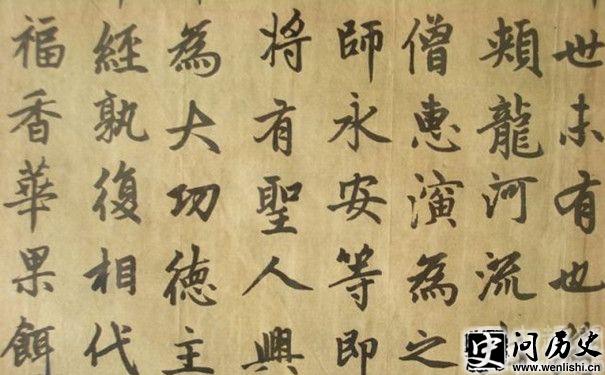 世未有也
頰龍河流
僧惠演為之
師永安等即
將有聖人興
為大功德主
經孰復相代
福香華果餌
问历史
www.wenlishi.cn